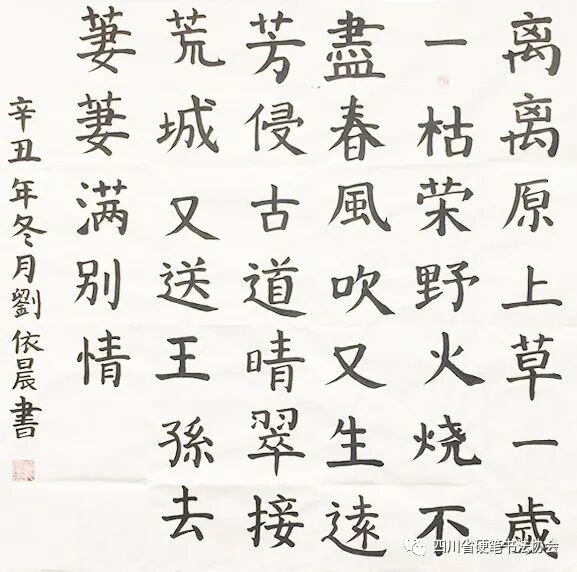 离离原上草一歳
一枯荣野火烧不
盡春風吹又生遠
芳侵古道晴翠接
荒城又送王孫去
萋萋满别情
辛丑年冬月劉依晨書
四川省硬笔书法协会